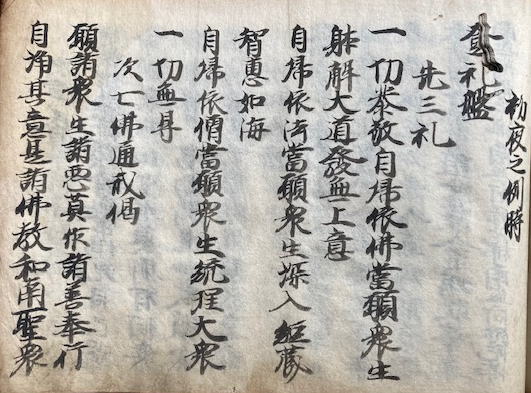 初夜之例時
登礼盤
先三礼
一切恭敬自帰依佛當願衆生
躰解大道發無上意
自帰依法當願衆生深入經蔵
智惠如海
自帰依僧當願衆生統理大衆
一切無㝵
次七佛通戒偈
願諸衆生諸悪莫作諸善奉行
自浄其意是諸佛教和南聖衆